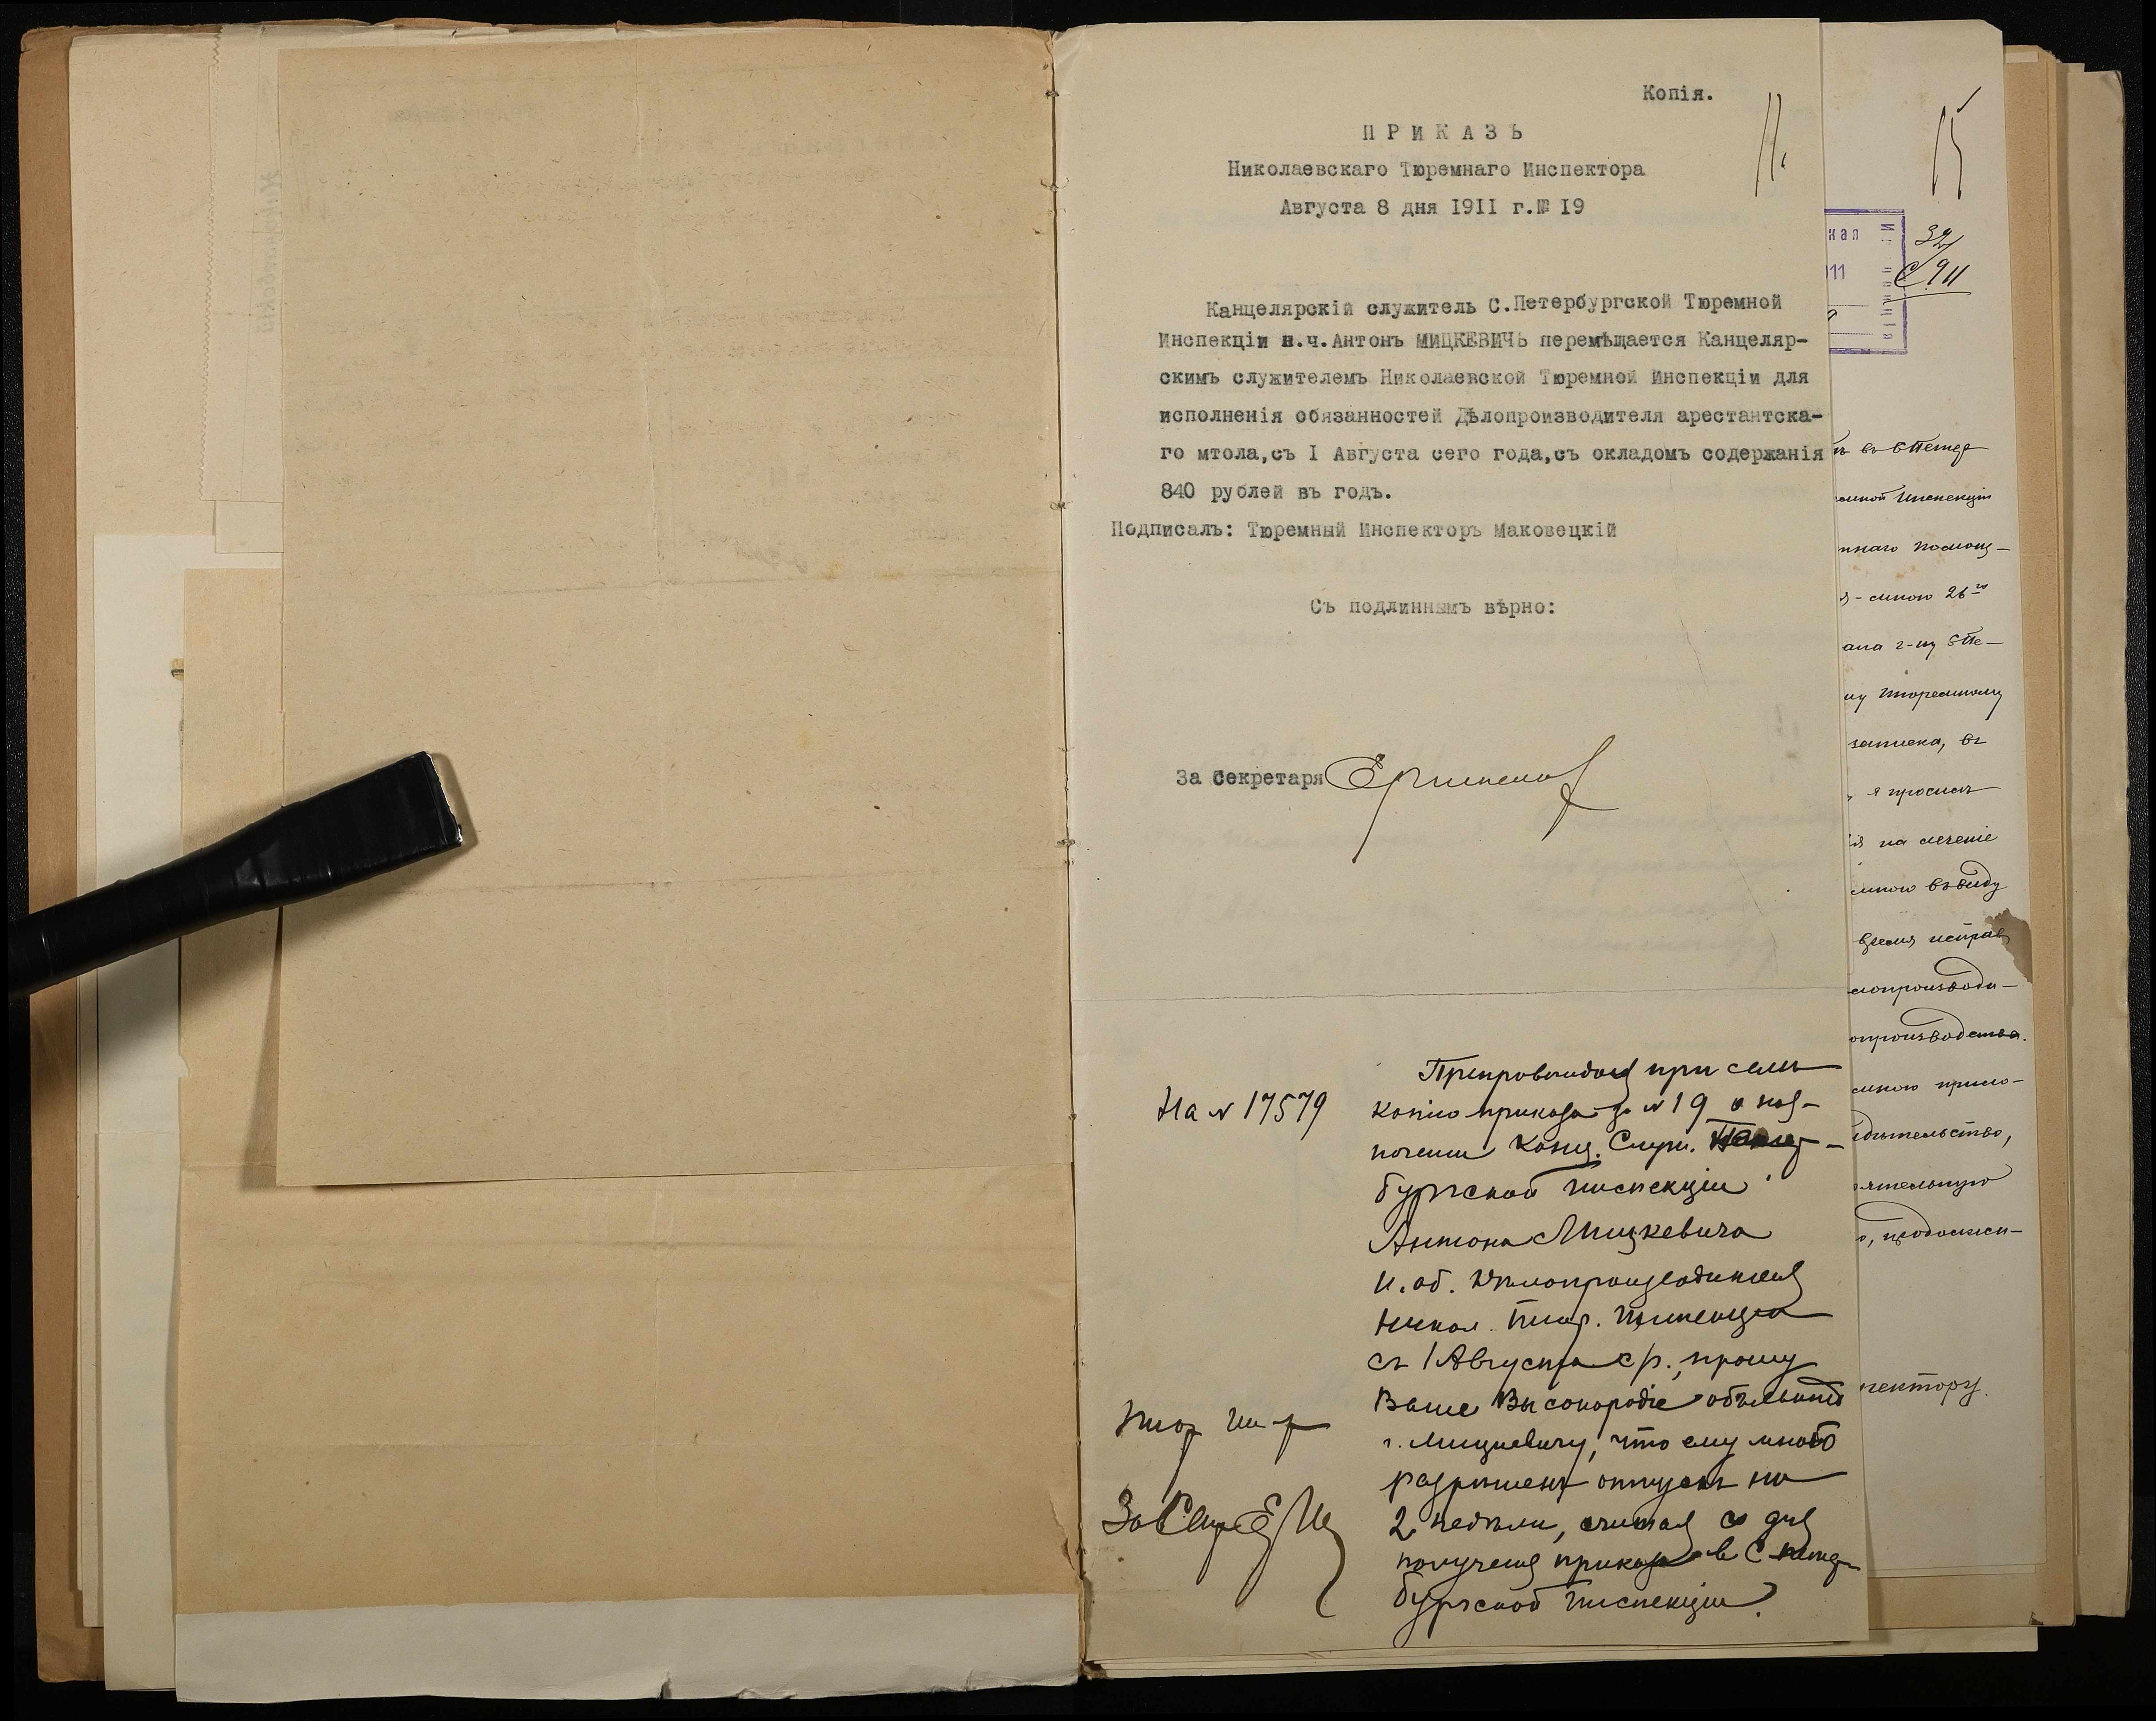 Копія.
11.
ПРИКАЗЪ
Николаевскаго Тюремнаго Инспектора
Августа 8 дня 1911 г.№ 19
Канцелярскій служитель С.Петербургской Тюремной
Инспекціи н.ч.Антонъ МИЦКЕВИЧЬ перемѣщается Канцеляр-
скимъ служителемъ Николаевской Тюремной Инспекціи для
исполненія обязанностей Дѣлопроизводителя арестантска-
го мтола,съ I Августа сего года,съ окладомъ содержанія
840 рублей въ годъ.
Подписалъ: Тюремный Инспекторъ Маковецкій
Съ подлиннымъ вѣрно:
За Секретаря
На № 17579
Препровождая при семъ
копію приказа за № 19 о наз-
наченіи Канц. Служ.
бургской Инспекціи
Антона Мицкевича
И. об. Дѣлопроизводителя
Никол. Тюр. Инспекціи
съ 1 Августа с/г., прошу
Ваше Высокородіе объявить
г. Мицкевичу, что ему мною
разрѣшенъ отпускъ на
2 недѣли, считая со дня
полученія приказа въ С Петер-
бургской Инспекціи.
Тюр Ин-р
За Секр
15
32/
С 911
кая
911
ъ въ СПетер
емной Инспекціи
ннаго помощ-
я - мною 26го
ана г-ну СПе-
му Тюремному
записка, въ
я просилъ
ія на леченіе
мною ввиду
время исправ
лопроизводи-
опроизводства.
мною прило-
идѣтельство,
оятельную
о, продолжи-
пектору.